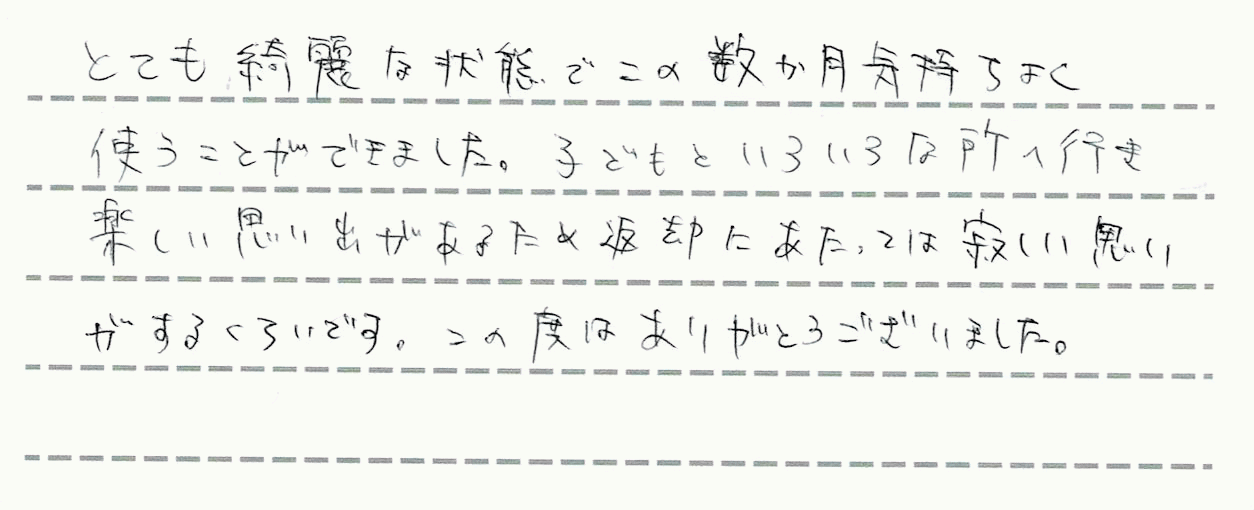 とても綺麗な状態でこの数か月気持ちよく
使うことができました。子どもといろいろな所へ行き
楽しい思い出があるため返却にあたっては寂しい思い
がするくらいです。この度はありがとうございました。